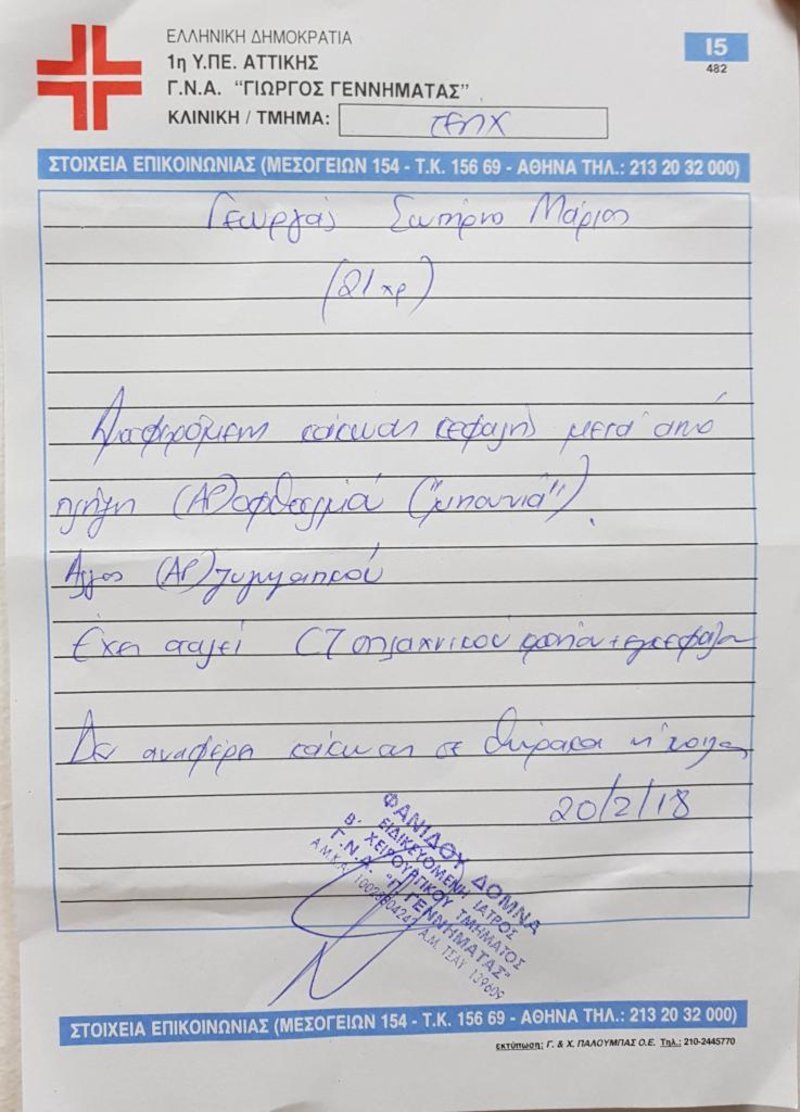 ΕΛΛΗΝΙΚΗ ΔΗΜΟΚΡΑΤΙΑ
1η Υ.ΠΕ. ΑΤΤΙΚΗΣ
Γ.Ν.Α. "ΓΙΩΡΓΟΣ ΓΕΝΝΗΜΑΤΑΣ"
ΚΛΙΝΙΚΗ / ΤΜΗΜΑ: ΤΕΠΧ
Ι5
482
ΣΤΟΙΧΕΙΑ ΕΠΙΚΟΙΝΩΝΙΑΣ (ΜΕΣΟΓΕΙΩΝ 154 - Τ.Κ. 156 69 - ΑΘΗΝΑ ΤΗΛ.: 213 20 32 000)
Γεωργάς Σωτήριο Μάριος
(21 χρ)
κάκωση κεφαλής μετά από
πλήξη (ΑΡ) οφθαλμιά ("μπουνιά").
Άλγος (ΑΡ) ζυγωματικού
Έχει σταλεί CT σπλαχνικού κρανίου + εγκεφάλου
Δεν αναφέρει κάκωση σε θώρακα ή κοιλία
20/2/18
ΦΑΝΙΔΟΥ ΔΟΜΝΑ
ΕΙΔΙΚΕΥΟΜΕΝΗ ΙΑΤΡΟΣ
Β' ΧΕΙΡΟΥΡΓΙΚΟΥ ΤΜΗΜΑΤΟΣ
Γ.Ν.Α. "Γ. ΓΕΝΝΗΜΑΤΑΣ"
Α.Μ.Κ.Α. Α.Μ. ΤΣΑΥ 139609
ΣΤΟΙΧΕΙΑ ΕΠΙΚΟΙΝΩΝΙΑΣ (ΜΕΣΟΓΕΙΩΝ 154 - Τ.Κ. 156 69 - ΑΘΗΝΑ ΤΗΛ.: 213 20 32 000)
εκτύπωση: Γ. & Χ. ΠΑΛΟΥΜΠΑΣ Ο.Ε. Τηλ.: 210-2445770